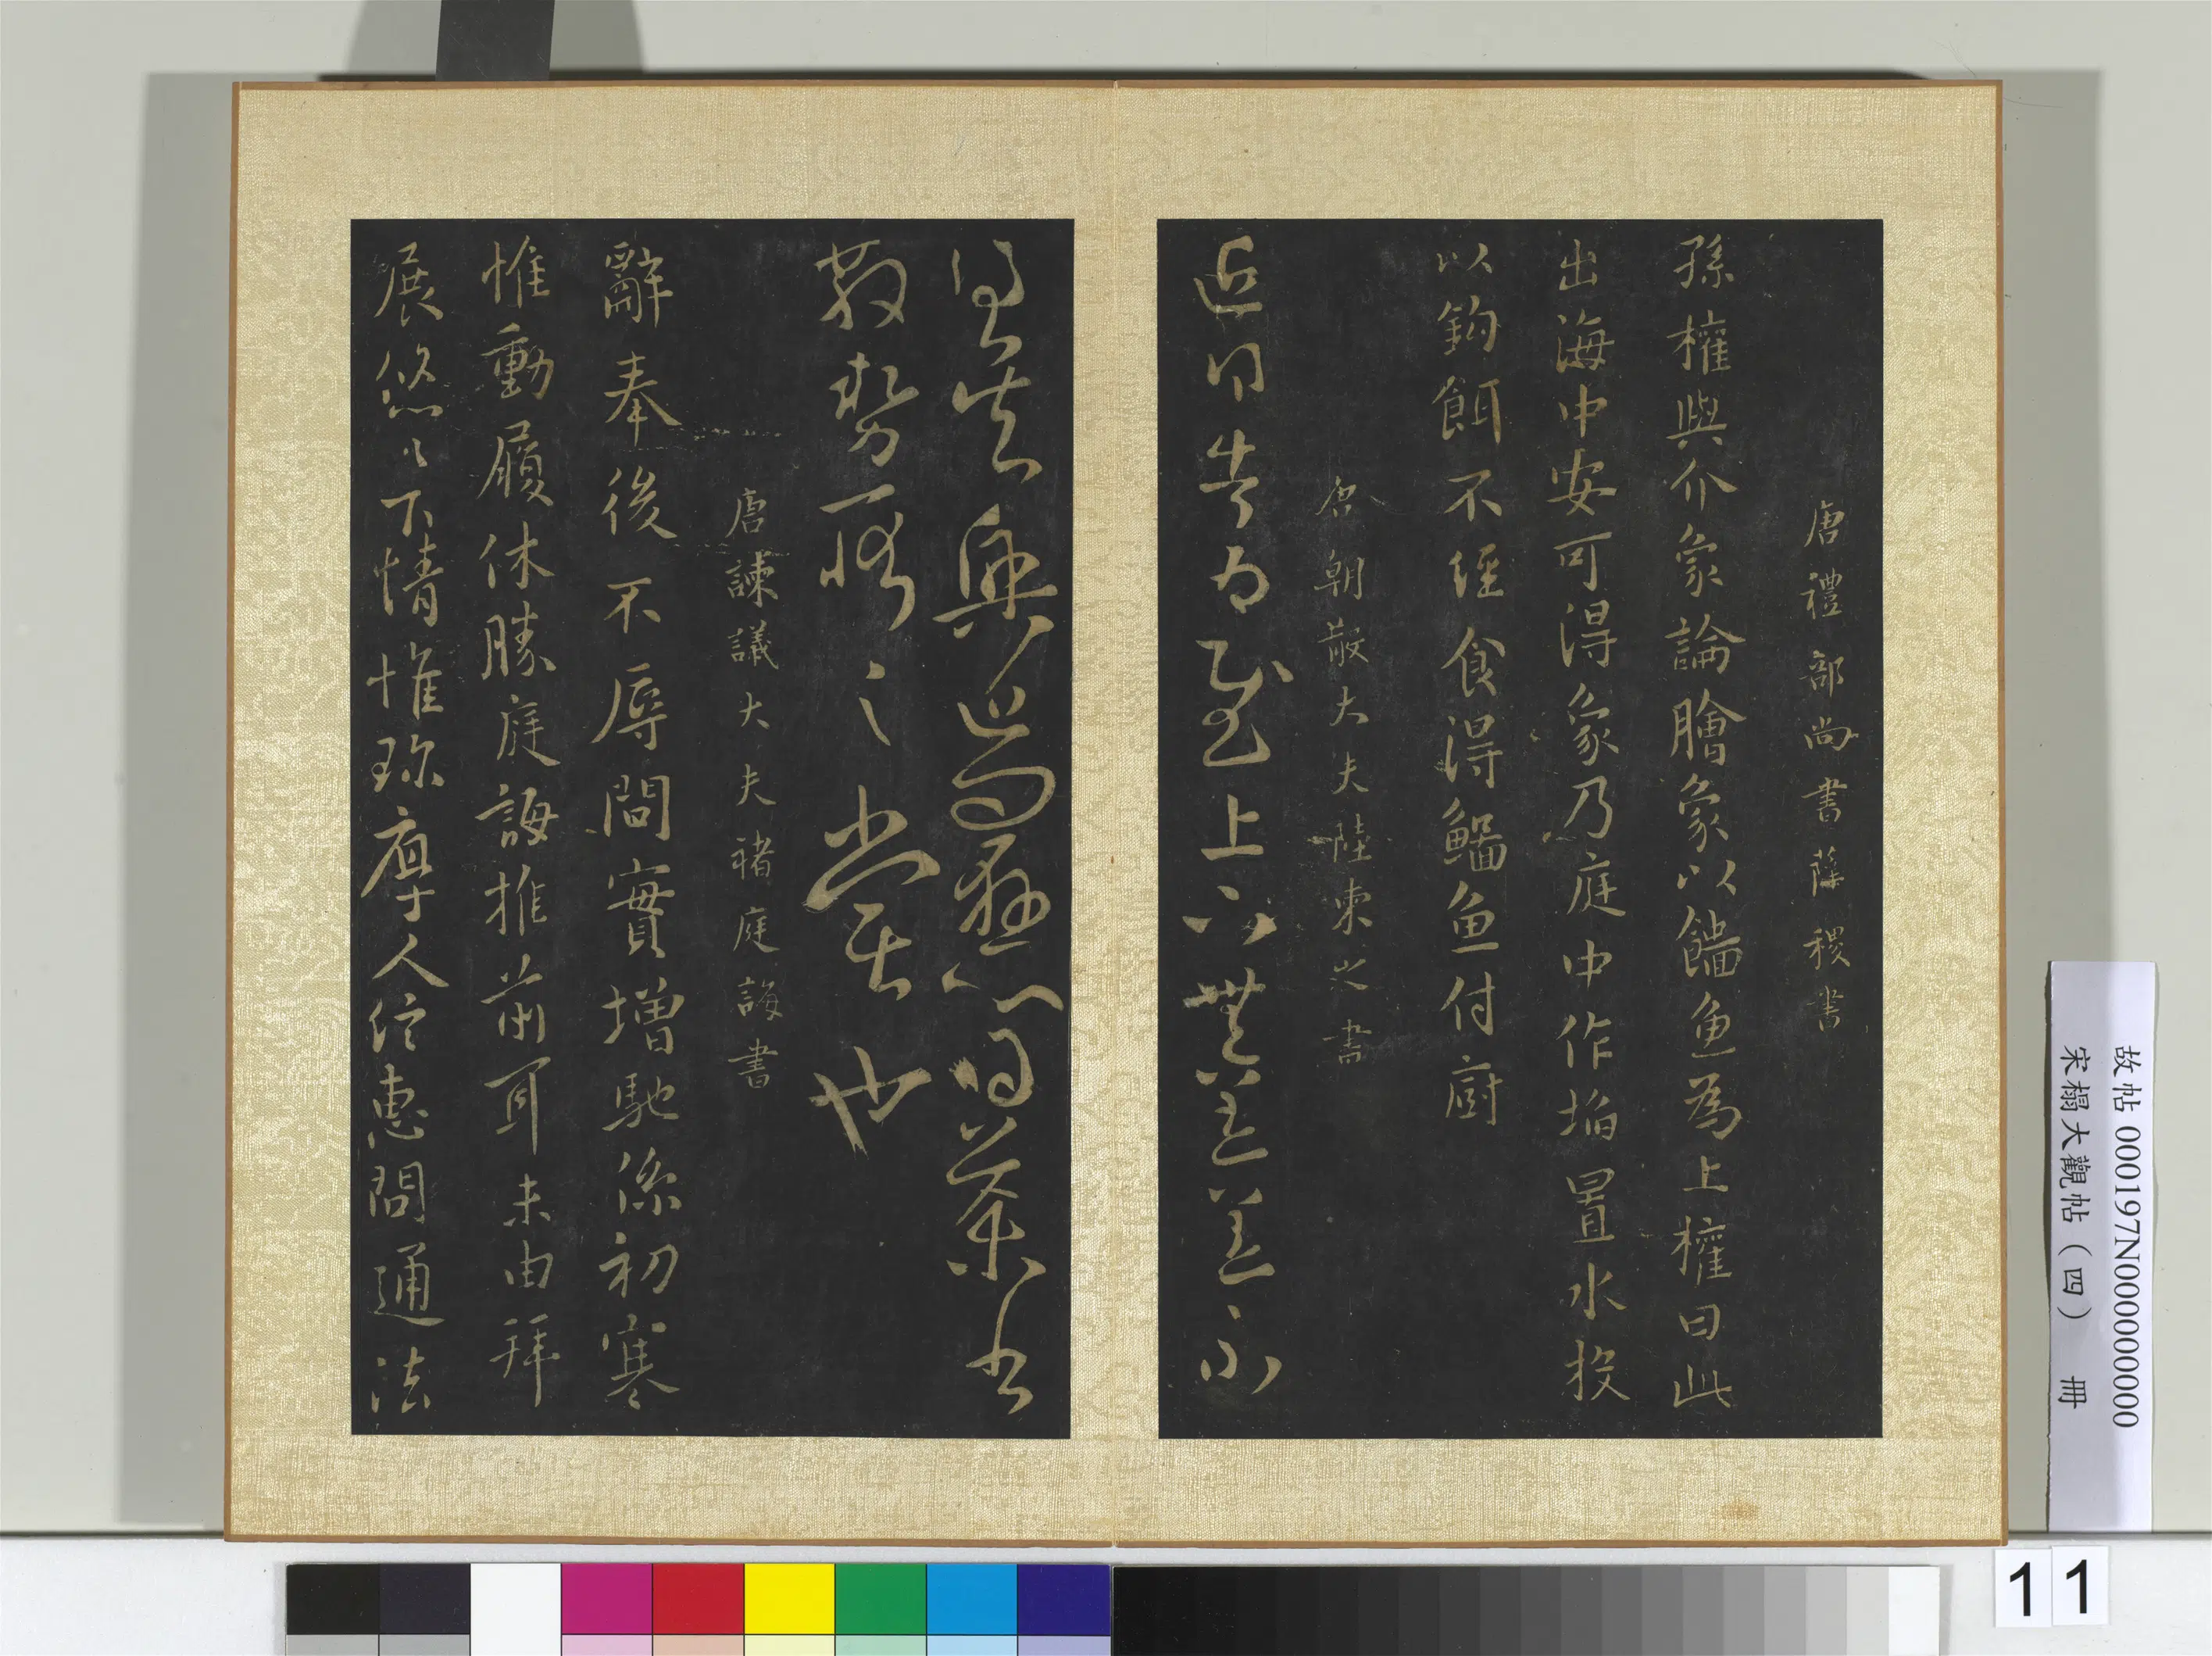 唐禮部尚書薛稷書
孫權與介象論膾象以鯔魚為上權曰此
出海中安可得象乃庭中作埳置水投
以鉤餌不經食得鯔魚付廚
唐朝散大夫陸柬之書
近告為慰上下無恙
得吳興近問懸心得
散勢之也
唐諫議大夫褚庭誨書
辭奉後不辱問實增馳係初寒
惟動履休勝庭誨推前耳未由拜
展悠々下情惟珍厚人信惠問通法
故帖 000197N000000000
宋榻大觀帖（四） 冊
11